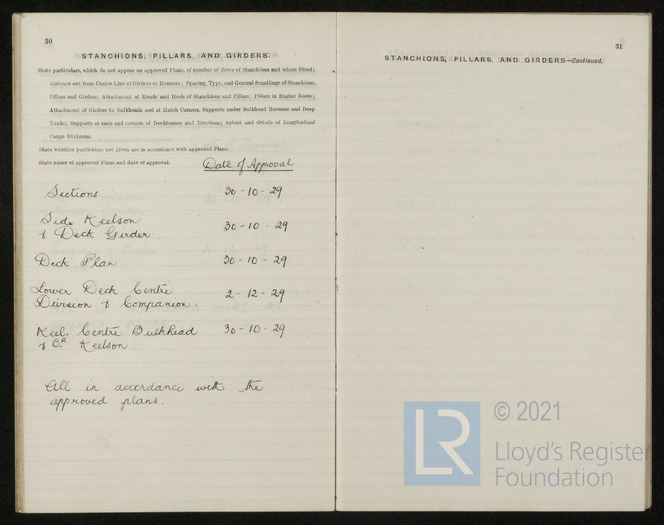 30
STANCHIONS, PILLARS, AND GIRDERS.
State particulars, which do not appear on approved Plans, of number of Rows of Stanchions and where fitted;
distance out from Centre Line of Girders or Runners; Spacing, Type, and General Scantlings of Stanchions,
Pillars and Girders; Attachment at Heads and Heels of Stanchions and Pillars; Pillars in Engine Room;
Attachment of Girders to Bulkheads and at Hatch Corners, Supports under Bulkhead Recesses and Deep
Tanks; Supports at ends and corners of Deckhouses and Erections; extent and details of Longitudinal
Cargo Divisions.
State whether particulars not given are in accordance with approved Plans.
State name of approved Plans and date of approval.
Date of Approval
Sections 30-10-29
Side Keelson
& Deck Girder. 30-10-29
Deck Plan 30-10-29
Lower Deck Centre
Division & Companion. 2-12-29
Keel, Centre Bulkhead 30-10-29
& Cr Keelson
All in accordance with the
approved plans.
31
STANCHIONS, PILLARS, AND GIRDERS—Continued.
LR
© 2021
Lloyd's Register
Foundation